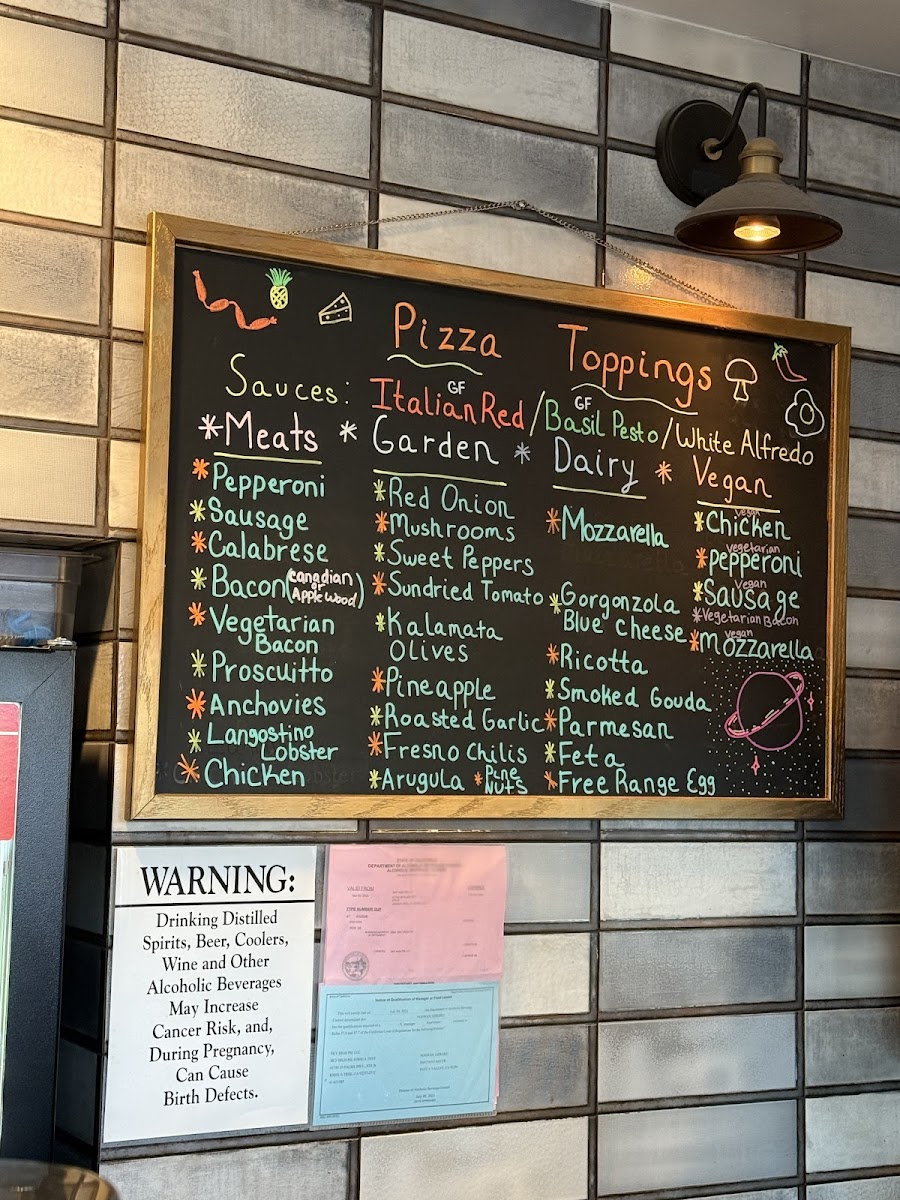 Pizza Toppings
Sauces: GF Italian Red / GF Basil Pesto / White Alfredo
*Meats * Garden * Dairy * Vegan
*Pepperoni
*Sausage
*Calabrese
*Bacon (Canadian or Applewood)
*Vegetarian
Bacon
*Proscuitto
*Anchovies
*Langostino
Lobster
*Chicken
*Red Onion
*Mushrooms
*Sweet Peppers
*Sundried Tomato
*Kalamata
Olives
*Pineapple
*Roasted Garlic
*Fresno Chilis
*Arugula *Pine Nuts
*Mozzarella
*Gorgonzola
Blue Cheese
*Ricotta
*Smoked Gouda
*Parmesan
*Feta
*Free Range Egg
vegan
*Chicken
vegetarian
*pepperoni
vegan
*Sausage
*Vegetarian Bacon
vegan
*mozzarella
WARNING:
Drinking Distilled
Spirits, Beer, Coolers,
Wine and Other
Alcoholic Beverages
May Increase
Cancer Risk, and,
During Pregnancy,
Can Cause
Birth Defects.